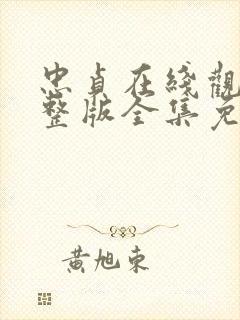 忠貞在綫觀
整版全集免
黃旭東